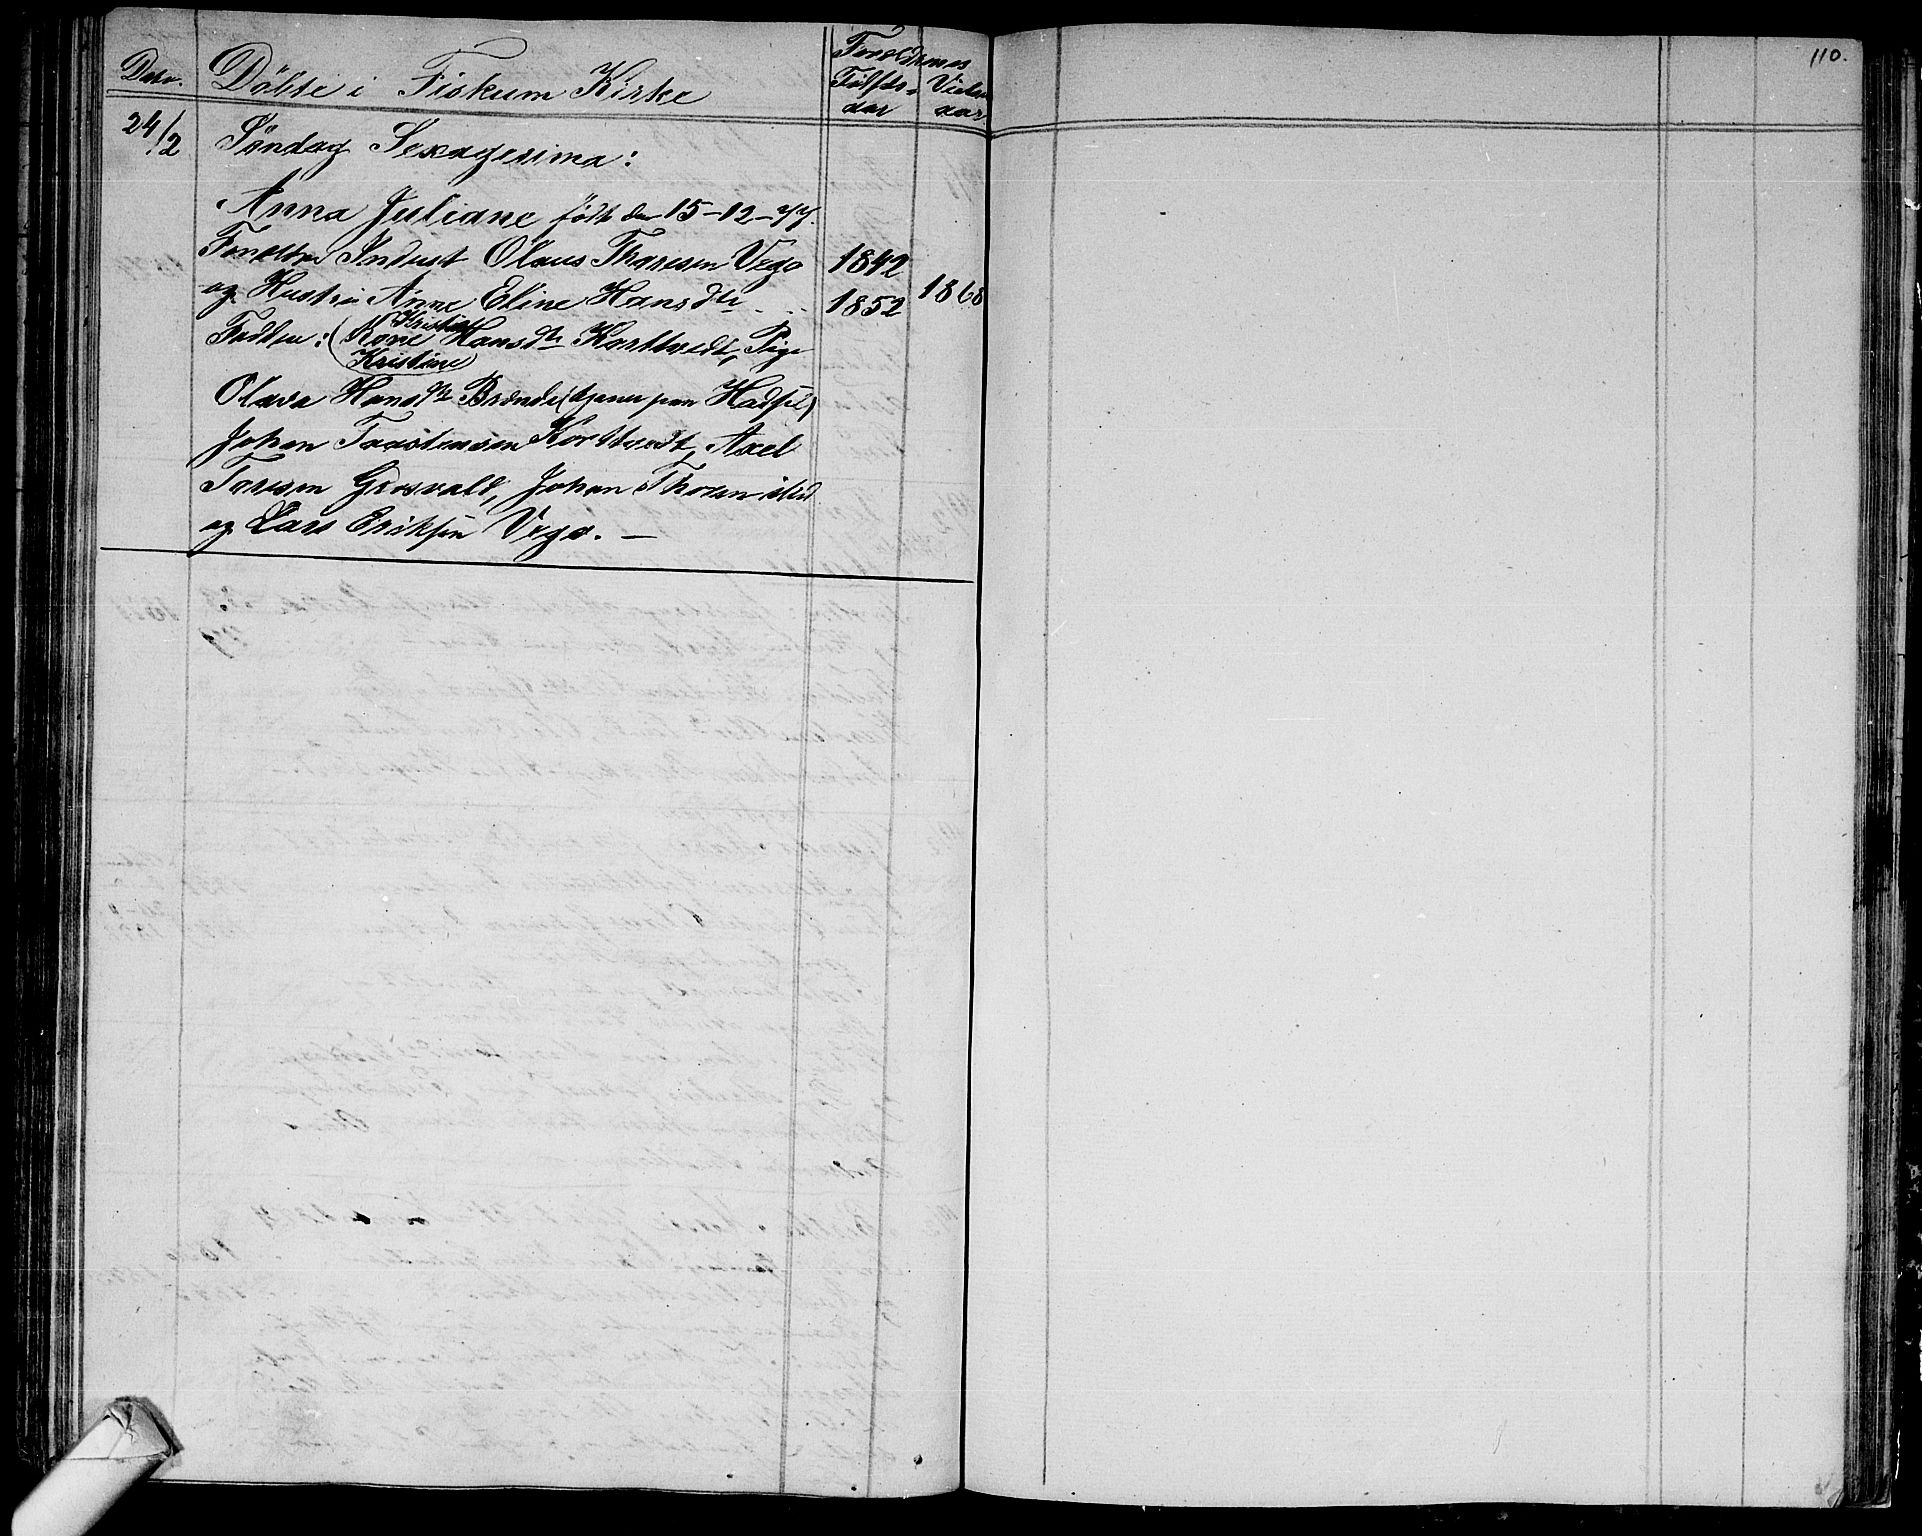 110.
Dato. Döbte i Fiskum Kirke Forældrenes
Födsels- Vielses
aar aar
24/2 Söndag Sexagesima:
Anna Juliane födt den 15-12-77.
Forældre Inderst Olaus Thoresen Vego 1842
og Hustru Anne Eline Hansdtr 1852 1868
Kristine
Faddere: (Karie Hansdtr Korttvedt, Pige
Kristine
Olava Hansdtr Brænde (tjener paa Hadsel)
Johan Taastensen Korttvedt, Axel
Toresen Grosvald, Johan Thoresen
og Lars Eriksen Vego. —